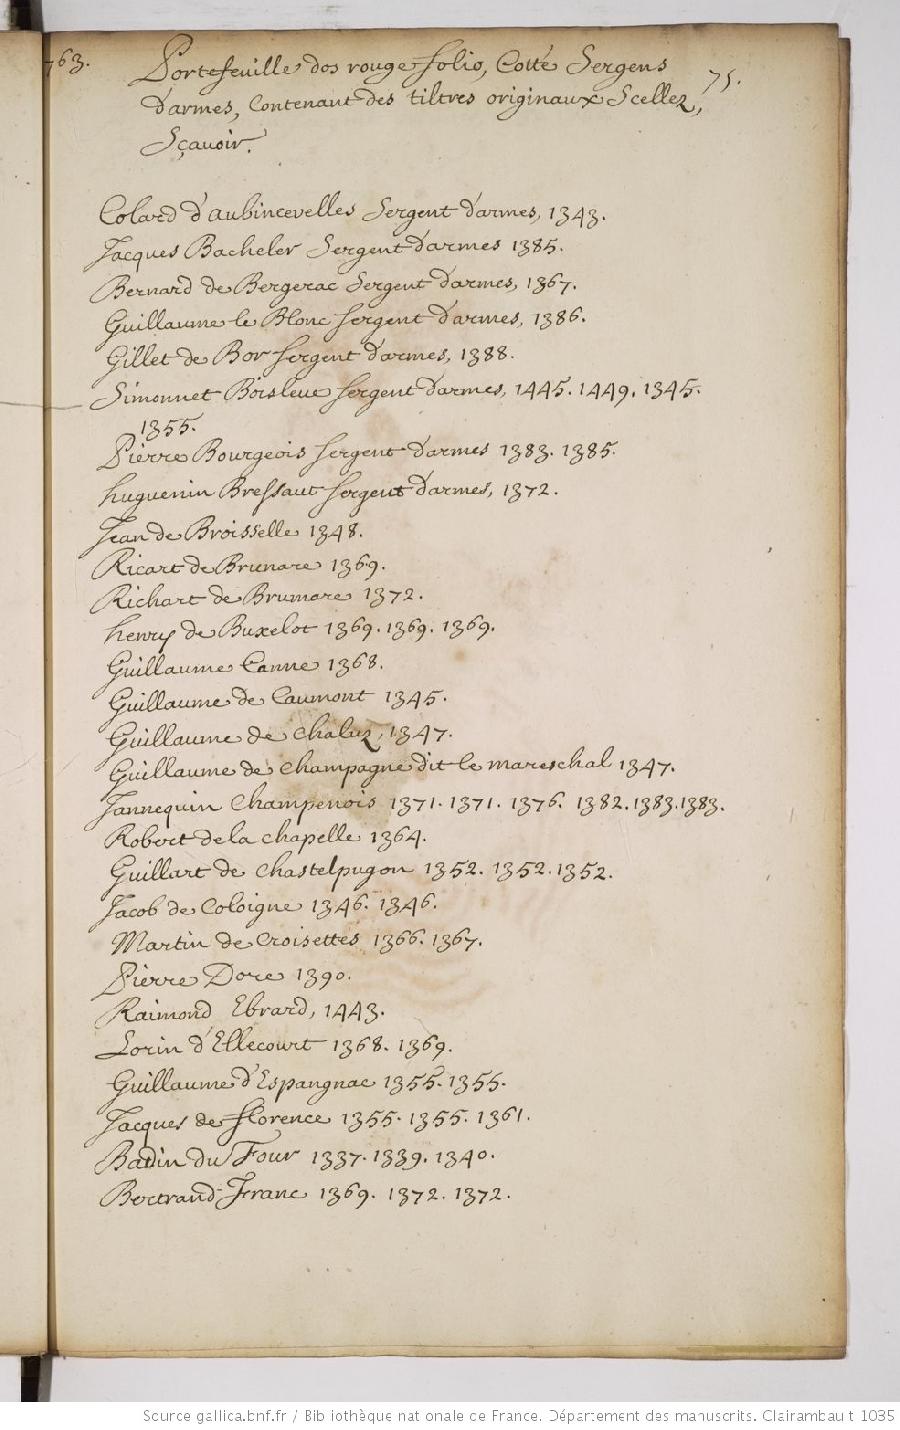 763.
75.
Portefeuille dos rouge folio, Cotté Sergens
d'armes, Contenant des tiltres originaux Scellez,
Sçavoir.
Colard d'aubincevelles Sergent d'armes, 1343.
Jacques Bacheler Sergent d'armes 1385.
Bernard de Bergerac Sergent d'armes, 1367.
Guillaume le Blonc sergent d'armes, 1386.
Gillet de Bor sergent d'armes, 1388.
Simonnet Boisleue sergent d'armes, 1445. 1449. 1345.
1355.
Pierre Bourgeois sergent d'armes 1383. 1385.
huguenin Bressaut sergent d'armes, 1372.
Jean de Broisselle 1348.
Ricart de Brunare 1369.
Richart de Brumare 1372.
henry de Buxelot 1369. 1369. 1369.
Guillaume Canne 1368.
Guillaume de Caumont 1345.
Guillaume de Chaluz, 1347.
Guillaume de Champagne dit le mareschal 1347.
Jannequin Champenois 1371. 1371. 1376. 1382. 1383. 1383.
Robert de la chapelle 1364.
Guillart de Chastelpugon 1352. 1352. 1352.
Jacob de Coloigne 1346. 1346.
Martin de Croisettes 1366. 1367.
Pierre Dore 1390.
Raimond Ebrard, 1443.
Lorin d'Ellecourt 1368. 1369.
Guillaume d'Espangnac 1355. 1355.
Jacques de florence 1355. 1355. 1361.
Baudin du Four 1337. 1339. 1340.
Bertrand Franc 1369. 1372. 1372.
Source gallica.bnf.fr / Bibliothèque nationale de France. Département des manuscrits. Clairambault 1035